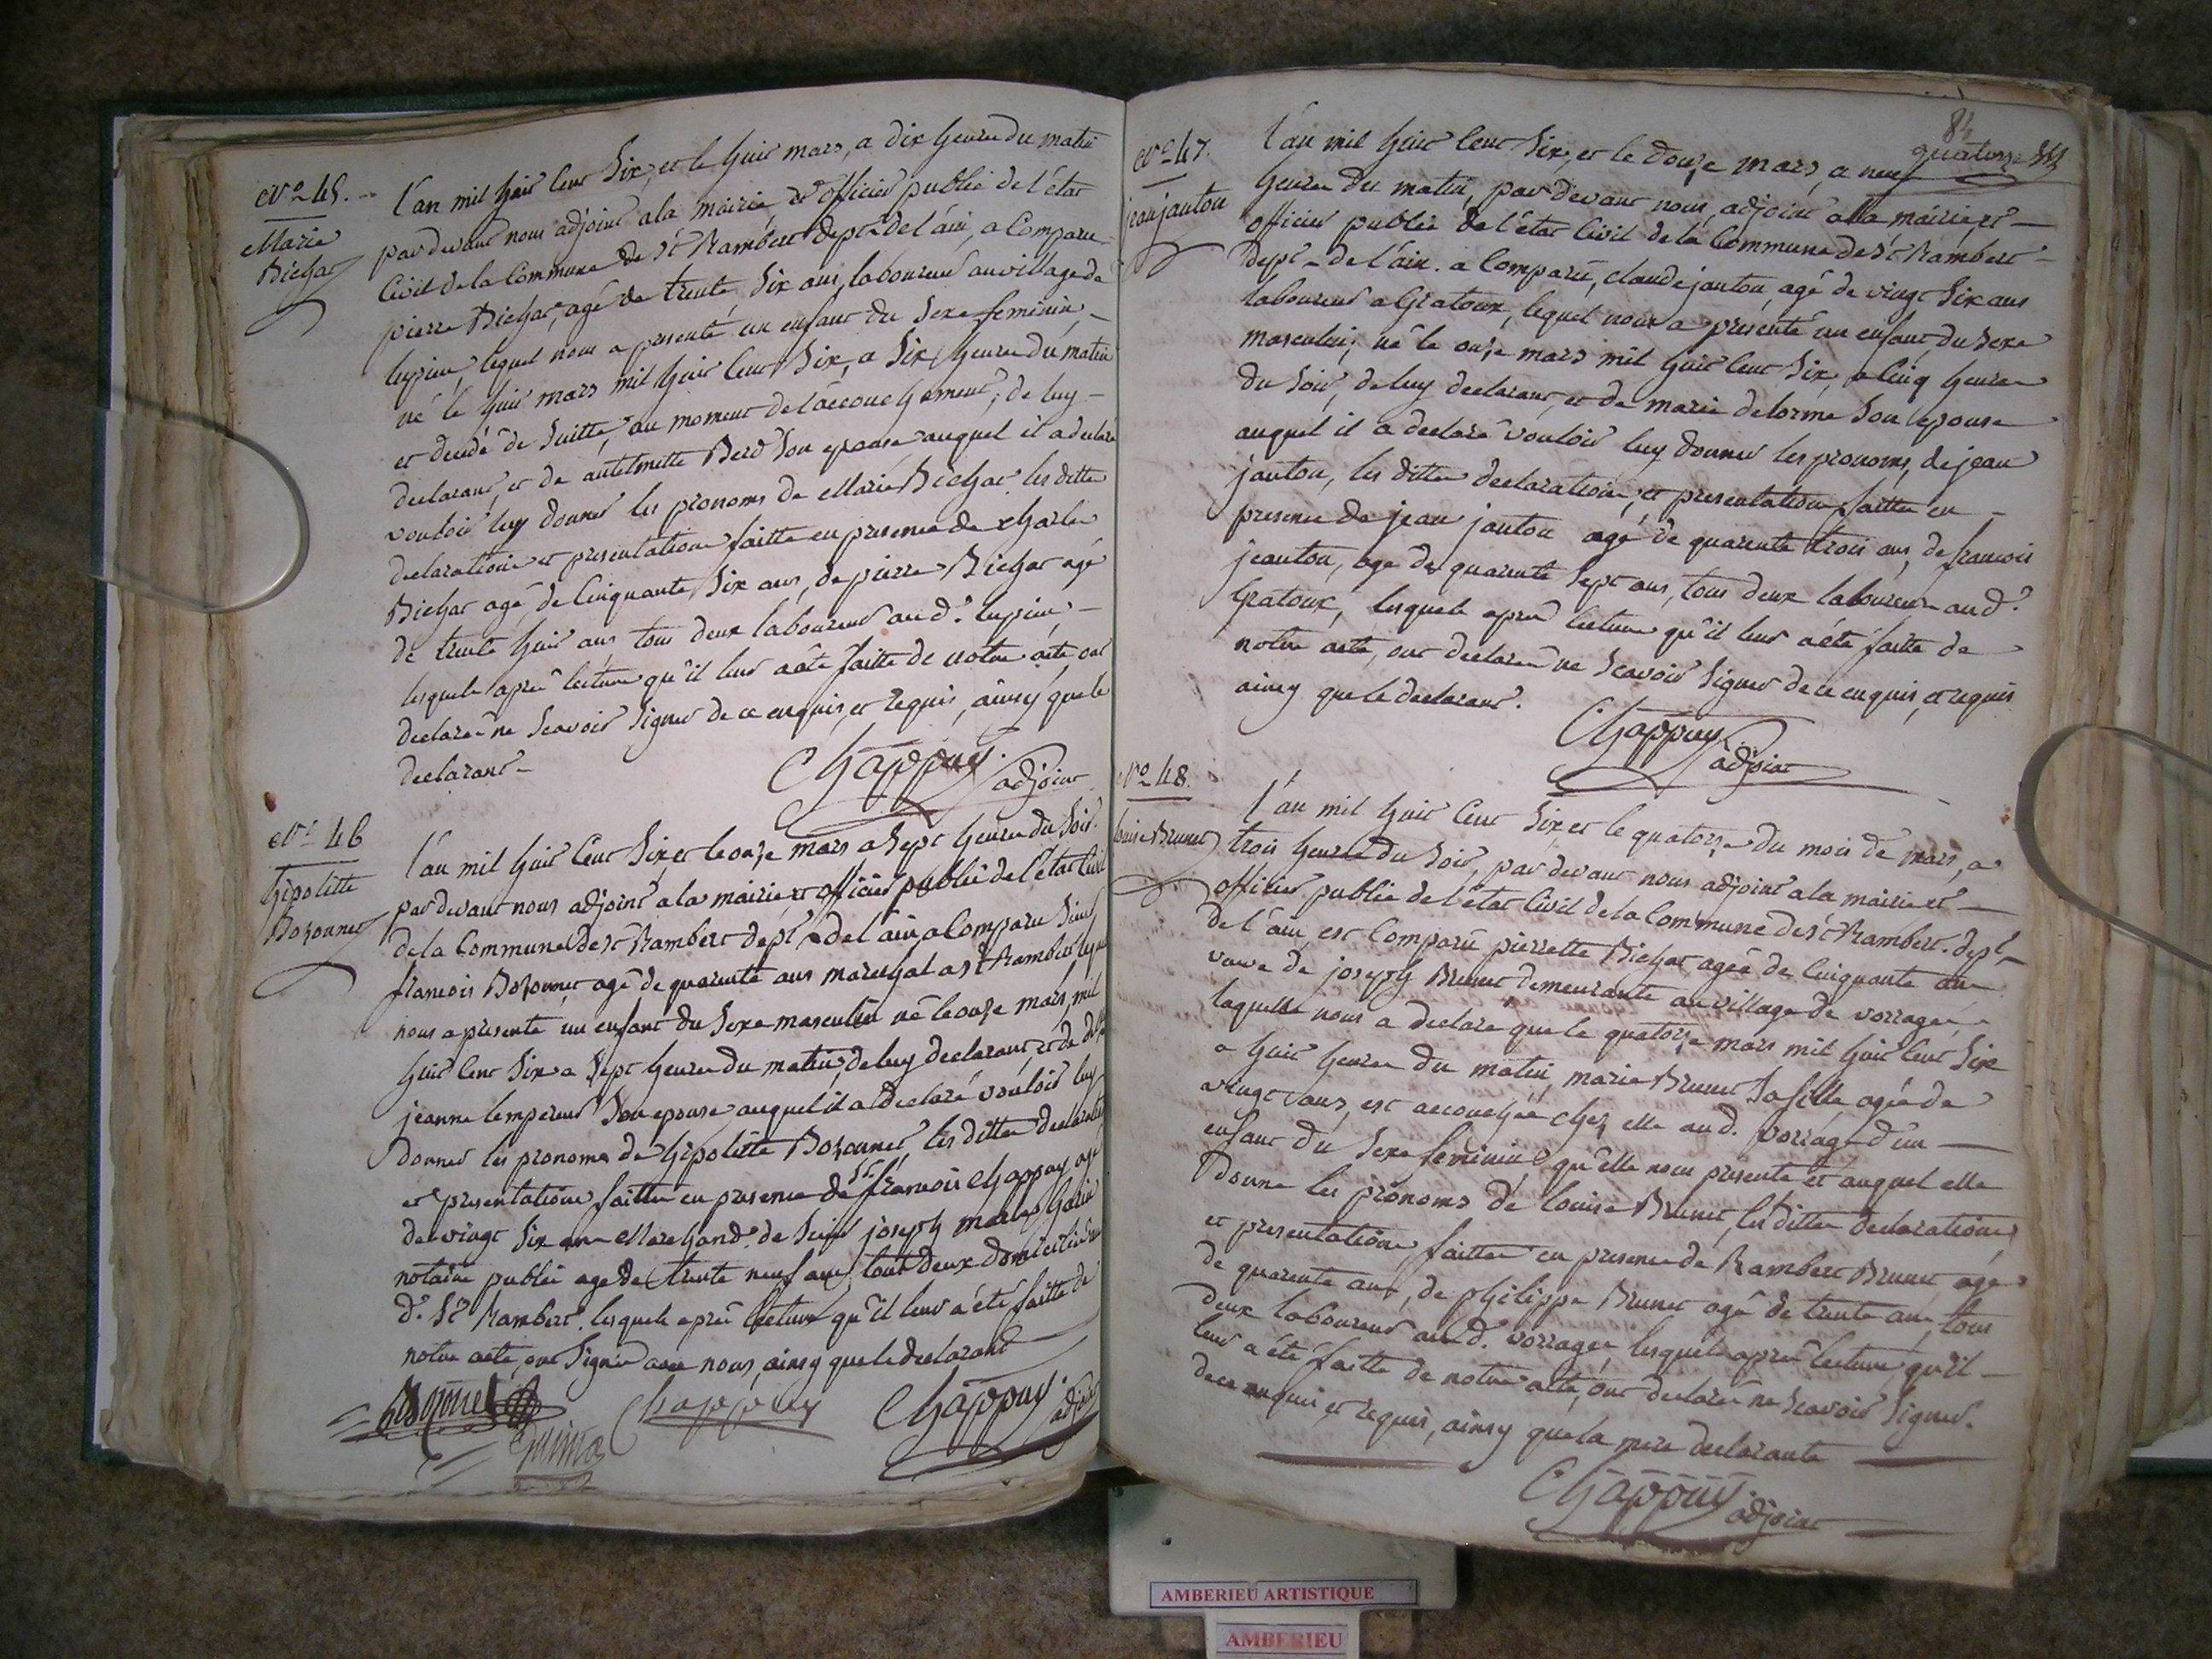 N.º 45.
Marie
Bichat
L'an mil huit cent six, et le huit mars, a dix heures du matin
par devant nous adjoint a la mairie et officier public de l'état
Civil de la Commune de St Rambert dept. de l'ain, a Comparu
pierre Bichat, agé de trente six ans, laboureur au village de
lupieu, lequel nous a presenté un enfant du sexe feminin,
né le huit mars mil huit cent six, a six heures du matin
et decédé de suitte, au moment de l'accouchement, de luy
declarant, et de antelmette Berd son epouse auquel il a declaré
vouloir luy donner les pronoms de Marie Bichat. les dittes
declarations et presentations faitte en presence de Charles
Bichat agé de Cinquante six ans, de pierre Bichat agé
de trente huit ans tous deux laboureurs aud. lupieu,
lesquels après lecture qu'il leur a été faitte de notre acte ont
declarés ne scavoir signer de ce enquis, et requis, ainsy que le
declarant
Chappuy adjoint
N.º 46
hipolitte
Bozonnet
L'an mil huit Cent six, et le onze mars a sept heures du soir.
par devant nous adjoint a la mairie, et officier public de l'état Civil
de la Commune de St Rambert dept. de l'ain, a Comparu sieur
francois Bozonnet agé de quarente ans marechal a St Rambert, lequel
nous a presenté un enfant du sexe masculin né le onze mars, mil
huit Cent six a sept heures du matin, de luy declarant, et de
jeanne lempereur son epouse auquel il a declaré vouloir luy
donner les pronoms de hipolitte Bozonnet, les dittes declarations
et presentations faittes en presence de sr. francois Chappuy agé
de vingt six ans Marchand. de sieur joseph marie
notaire public agé de trente neuf ans, tous deux domiciliés
d. St Rambert. lesquels après lecture qu'il leur a été faitte de
notre acte, ont signés avec nous, ainsy que le declarant
Bozonnet
Chappuy
Chappuy adjoint
84
quatorze
N.º 47.
jean janton
L'an mil huit Cent six, et le douze mars, a neuf
heures du matin, par devant nous, adjoint a la mairie, et
officier public de l'état Civil de la Commune de St Rambert
dept. de l'ain. a Comparu, claude janton, agé de vingt six ans
laboureur a Gratoux, lequel nous a presenté un enfant du sexe
masculin, né le onze mars mil huit cent six, a cinq heures
du soir, de luy declarant, et de marie delorme son epouse
auquel il a declaré vouloir luy donner les pronoms, de jean
janton, les dittes declarations, et presentations faittes en
presence de jean janton agé de quarente trois ans, de francois
jeanton, agé de quarente sept ans, tous deux laboureurs aud.
Gratoux, lesquels après lecture qu'il leur a été faitte de
notre acte, ont declarés ne scavoir signer de ce enquis, et requis
ainsy que le declarant.
Chappuy adjoint
N.º 48.
louise Brunet
L'an mil huit Cent six et le quatorze du mois de mars, a
trois heures du soir, par devant nous adjoint a la mairie et
officier public de l'état Civil de la Commune de St Rambert. dept.
de l'ain, est Comparu pierrette Bichat agée de Cinquante ans
veuve de joseph Brunet demeurante au village de vorrages
laquelle nous a declaré que le quatorze mars mil huit cent six
a huit heures du matin, marie Brunet sa fille, agée de
vingt ans, est accouchée chez elle aud. vorrages d'un
enfant du sexe feminin, qu'elle nous presente et auquel elle
donne les pronoms de louise Brunet, les dittes declarations
et presentations faittes en presence de Rambert Brunet agé
de quarente ans, de philippe Brunet agé de trente ans, tous
deux laboureurs aud. vorrages lesquels après lecture qu'il
leur a été faitte de notre acte, ont declarés ne scavoir signer.
de ce enquis et requis, ainsy que la mere declarante
Chappuy adjoint
AMBERIEU ARTISTIQUE
AMBERIEU